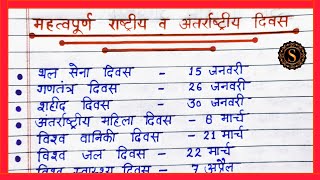 महत्वपूर्ण राष्ट्रीय व अंतर्राष्ट्रीय दिवस
S
थल सेना दिवस - 15 जनवरी
गणतंत्र दिवस - 26 जनवरी
शहीद दिवस - 30 जनवरी
अंतर्राष्ट्रीय महिला दिवस - 8 मार्च
विश्व वानिकी दिवस - 21 मार्च
विश्व जल दिवस - 22 मार्च
विश्व स्वास्थ्य दिवस - 7 अप्रैल